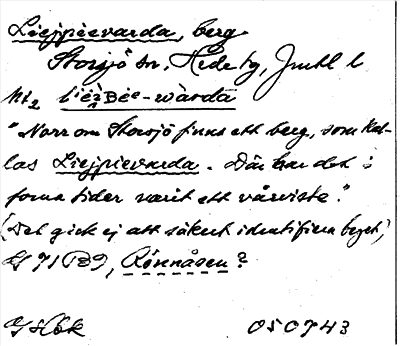 Liejpievarda, berg
Storsjö sn, Hede tg, Jmtl l
"Norr om Storsjö finns ett berg, som kal-
las Liejpievarda. Där har det i
forna tider varit ett vårviste."
(Det gick ej att säkert identifiera berget,
Rönnåsen?
050743